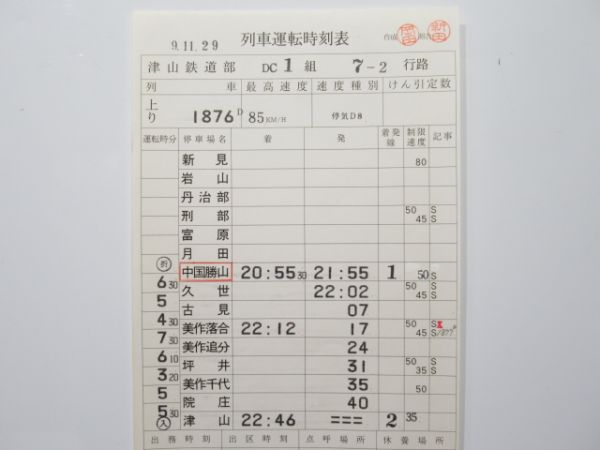 9.11.29 列車運転時刻表 作成
津山鉄道部 DC 1 組 7-2 行路
列車 最高速度 速度種別 けん引定数
上り 1876D 85KM/H 停気D8
運転時分 停車場名 着 発 着発線 制限速度 記事
新見 80
岩山
丹治部
刑部 50 45 S S
富原
月田
折 中国勝山 20:55 30 21:55 1 50 S
6 30
久世 22:02 50 45 S S
5
古見 07
4 30
美作落合 22:12 17 50 45 S S
7 30
美作追分 24
6 10
坪井 31 50 35 S S
3 20
美作千代 35 50
5
院庄 40
5 30
入 津山 22:46 === 2 35
出務時刻 出区時刻 点呼場所 休養場所